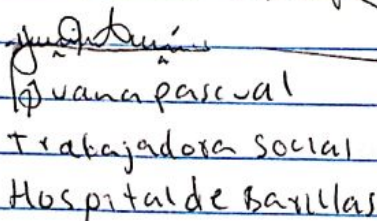 Juana pascual
Trabajadora social
Hospital de Barillas